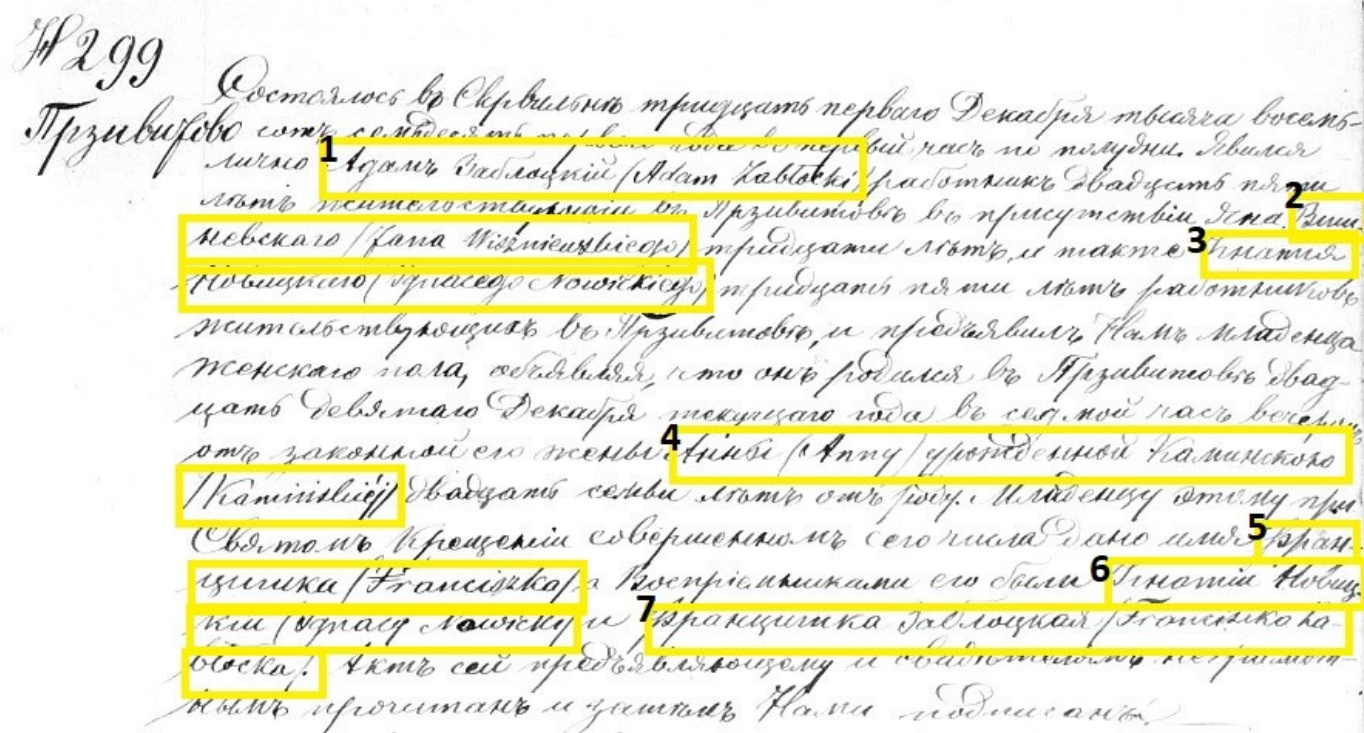 № 299
Прзивитово
Состоялось въ Скрвильнѣ тридцать перваго Декабря тысяча восемь-
сотъ семьдесятъ перваго года въ первый часъ по полудни. Явился
лично 1 Адамъ Заблоцкій (Adam Zabłocki) работникъ двадцать пяти
лѣтъ жительствующій въ Прзивитовѣ въ присутствіи Яна 2 Виш-
невскаго (Jana Wiszniewskiego) тридцати лѣтъ, и также 3 Игнатія
Новицкаго (Ignacego Nowickiego) тридцать пяти лѣтъ работниковъ
жительствующихъ въ Прзивитовѣ, и предъявилъ Намъ младенца
женскаго пола, объявляя, что онъ родился въ Прзивитовѣ двад-
цать девятаго Декабря текущаго года въ седмой часъ вечеромъ
отъ законной его жены 4 Анны (Anny) урожденной Каминского
(Kamińskiéj) двадцать семи лѣтъ отъ роду. Младенцу этому при
Святомъ Крещеніи совершенномъ сего числа дано имя 5 Фран-
цишка (Franciszka) а Воспріемниками его были 6 Игнатій Новиц-
кій (Ignacy Nowicky) и 7 Францишка Заблоцкая (Franciszka Za-
błocka). Актъ сей предъявляющему и свидѣтелямъ неграмот-
нымъ прочитанъ и затѣмъ Нами подписанъ.